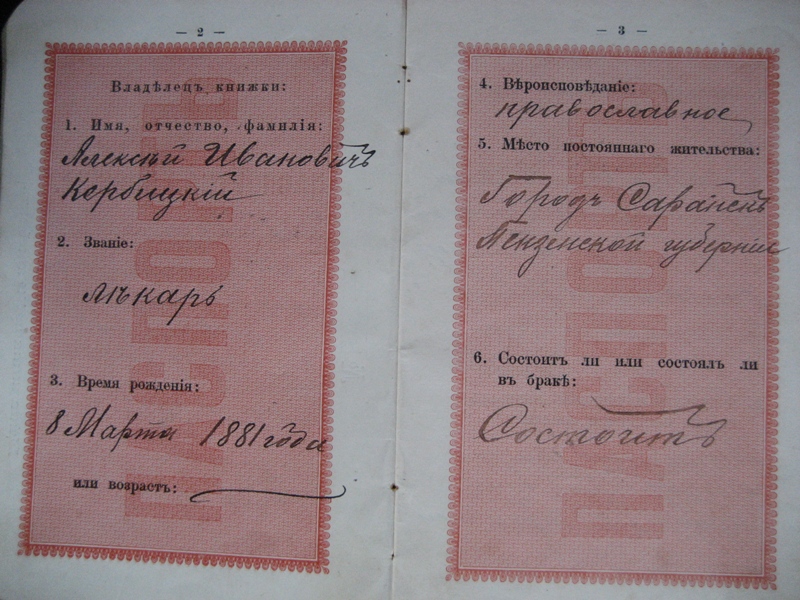 — 2 —
Владѣлецъ книжки:
1. Имя, отчество, фамилія:
Алексѣй Ивановичъ
Кербицкій
2. Званіе:
лѣкарь
3. Время рожденія:
8 Марта 1881 года
или возрастъ:
ПАСПОРТЪ
— 3 —
4. Вѣроисповѣданіе:
православное
5. Мѣсто постояннаго жительства:
Городъ Саранскъ
Пензенской губерніи
6. Состоитъ ли или состоялъ ли
въ бракѣ:
Состоитъ
ПАСПОРТЪ